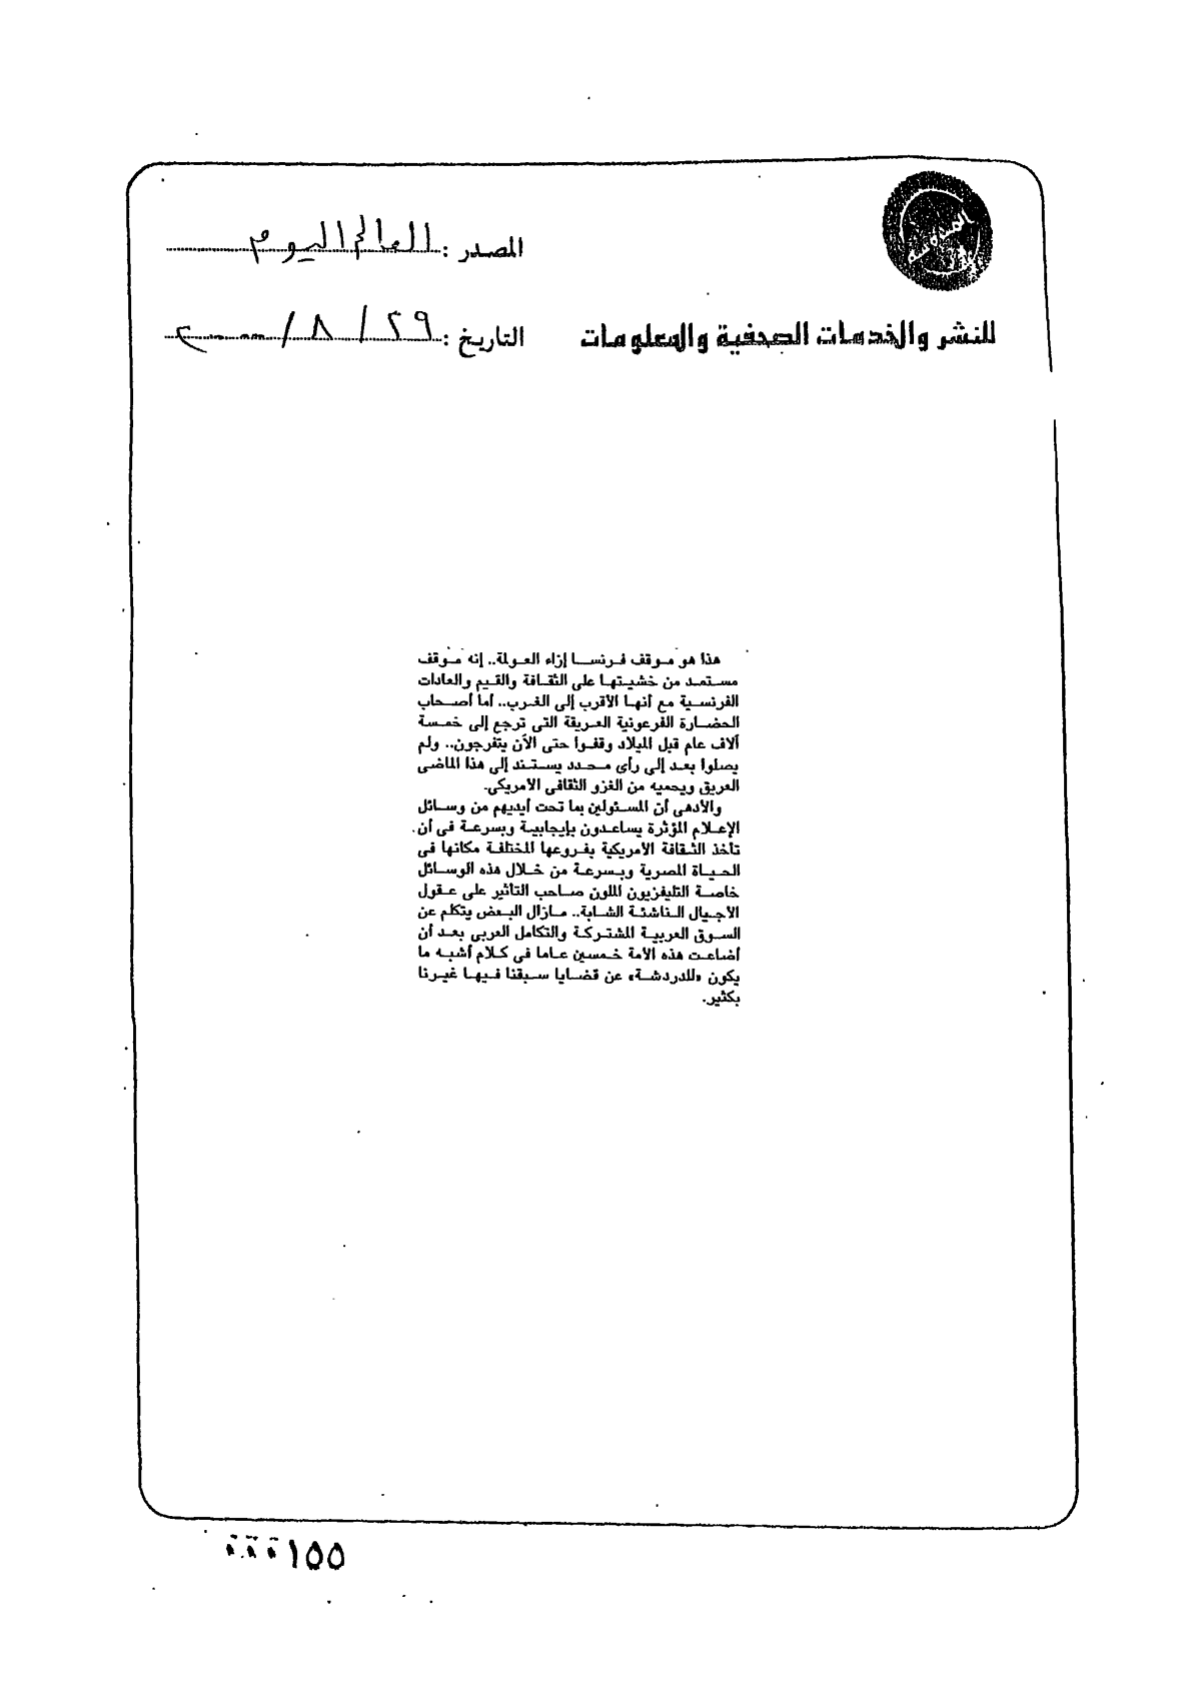 المصدر : العالم اليوم
للنشر والخدمات الصحفية والمعلومات
التاريخ : ٢٩ / ٨ / ٢٠٠٠
هذا هو موقف فرنسا إزاء العولمة.. إنه موقف
مستمد من خشيتها على الثقافة والقيم والعادات
الفرنسية مع أنها الأقرب إلى الغرب.. أما أصحاب
الحضارة الفرعونية العريقة التى ترجع إلى خمسة
آلاف عام قبل الميلاد وقفوا حتى الآن يتفرجون.. ولم
يصلوا بعد إلى رأى محدد يستند إلى هذا الماضى
العريق ويحميه من الغزو الثقافى الأمريكى.
والأدهى أن المسئولين بما تحت أيديهم من وسائل
الإعلام المؤثرة يساعدون بإيجابية وبسرعة فى أن
تأخذ الثقافة الأمريكية بفروعها المختلفة مكانها فى
الحياة المصرية وبسرعة من خلال هذه الوسائل
خاصة التليفزيون الملون صاحب التأثير على عقول
الأجيال الناشئة الشابة.. مازال البعض يتكلم عن
السوق العربية المشتركة والتكامل العربى بعد أن
أضاعت هذه الأمة خمسين عاما فى كلام أشبه ما
يكون «للدردشة» عن قضايا سبقنا فيها غيرنا
بكثير.
٠٠٠١٥٥